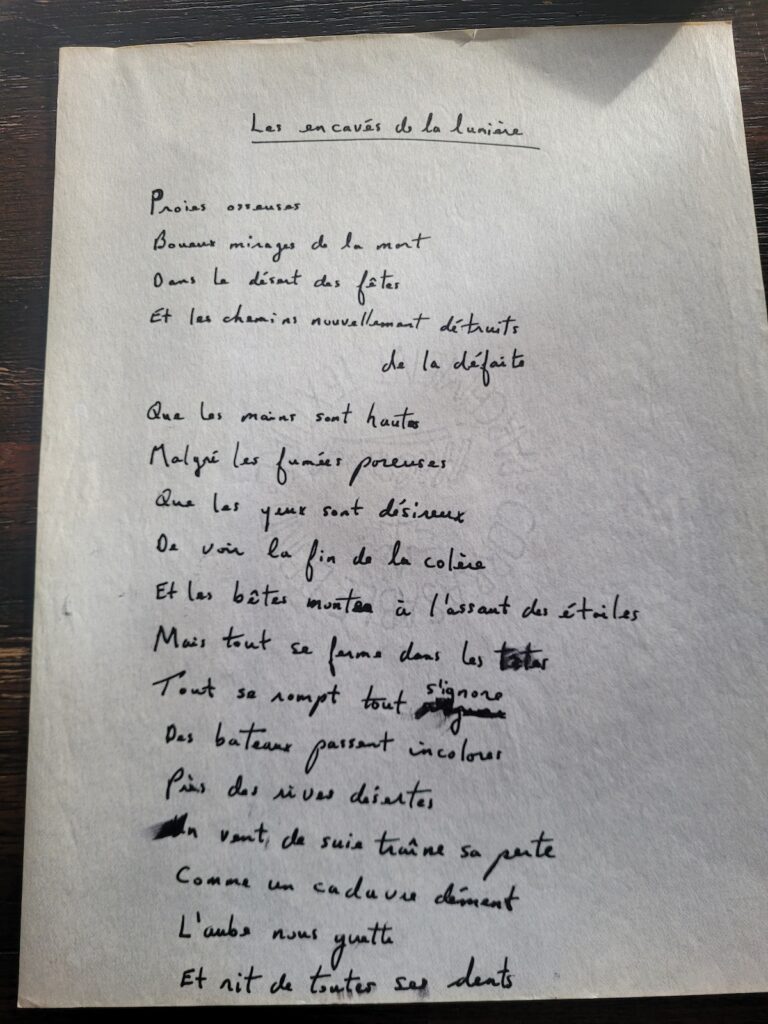 Les encavés de la lumière
Proies osseuses
Boueux mirages de la mort
Dans le désert des fêtes
Et les chemins nouvellement détruits
de la défaite
Que les mains sont hautes
Malgré les fumées poreuses
Que les yeux sont désireux
De voir la fin de la colère
Et les bêtes montes à l'assaut des étoiles
Mais tout se ferme dans les têtes
Tout se rompt tout s'ignore
Des bateaux passent incolores
Près des rives désertes
Un vent de suie traîne sa perte
Comme un cadavre dément
L'aube nous guette
Et rit de toutes ses dents